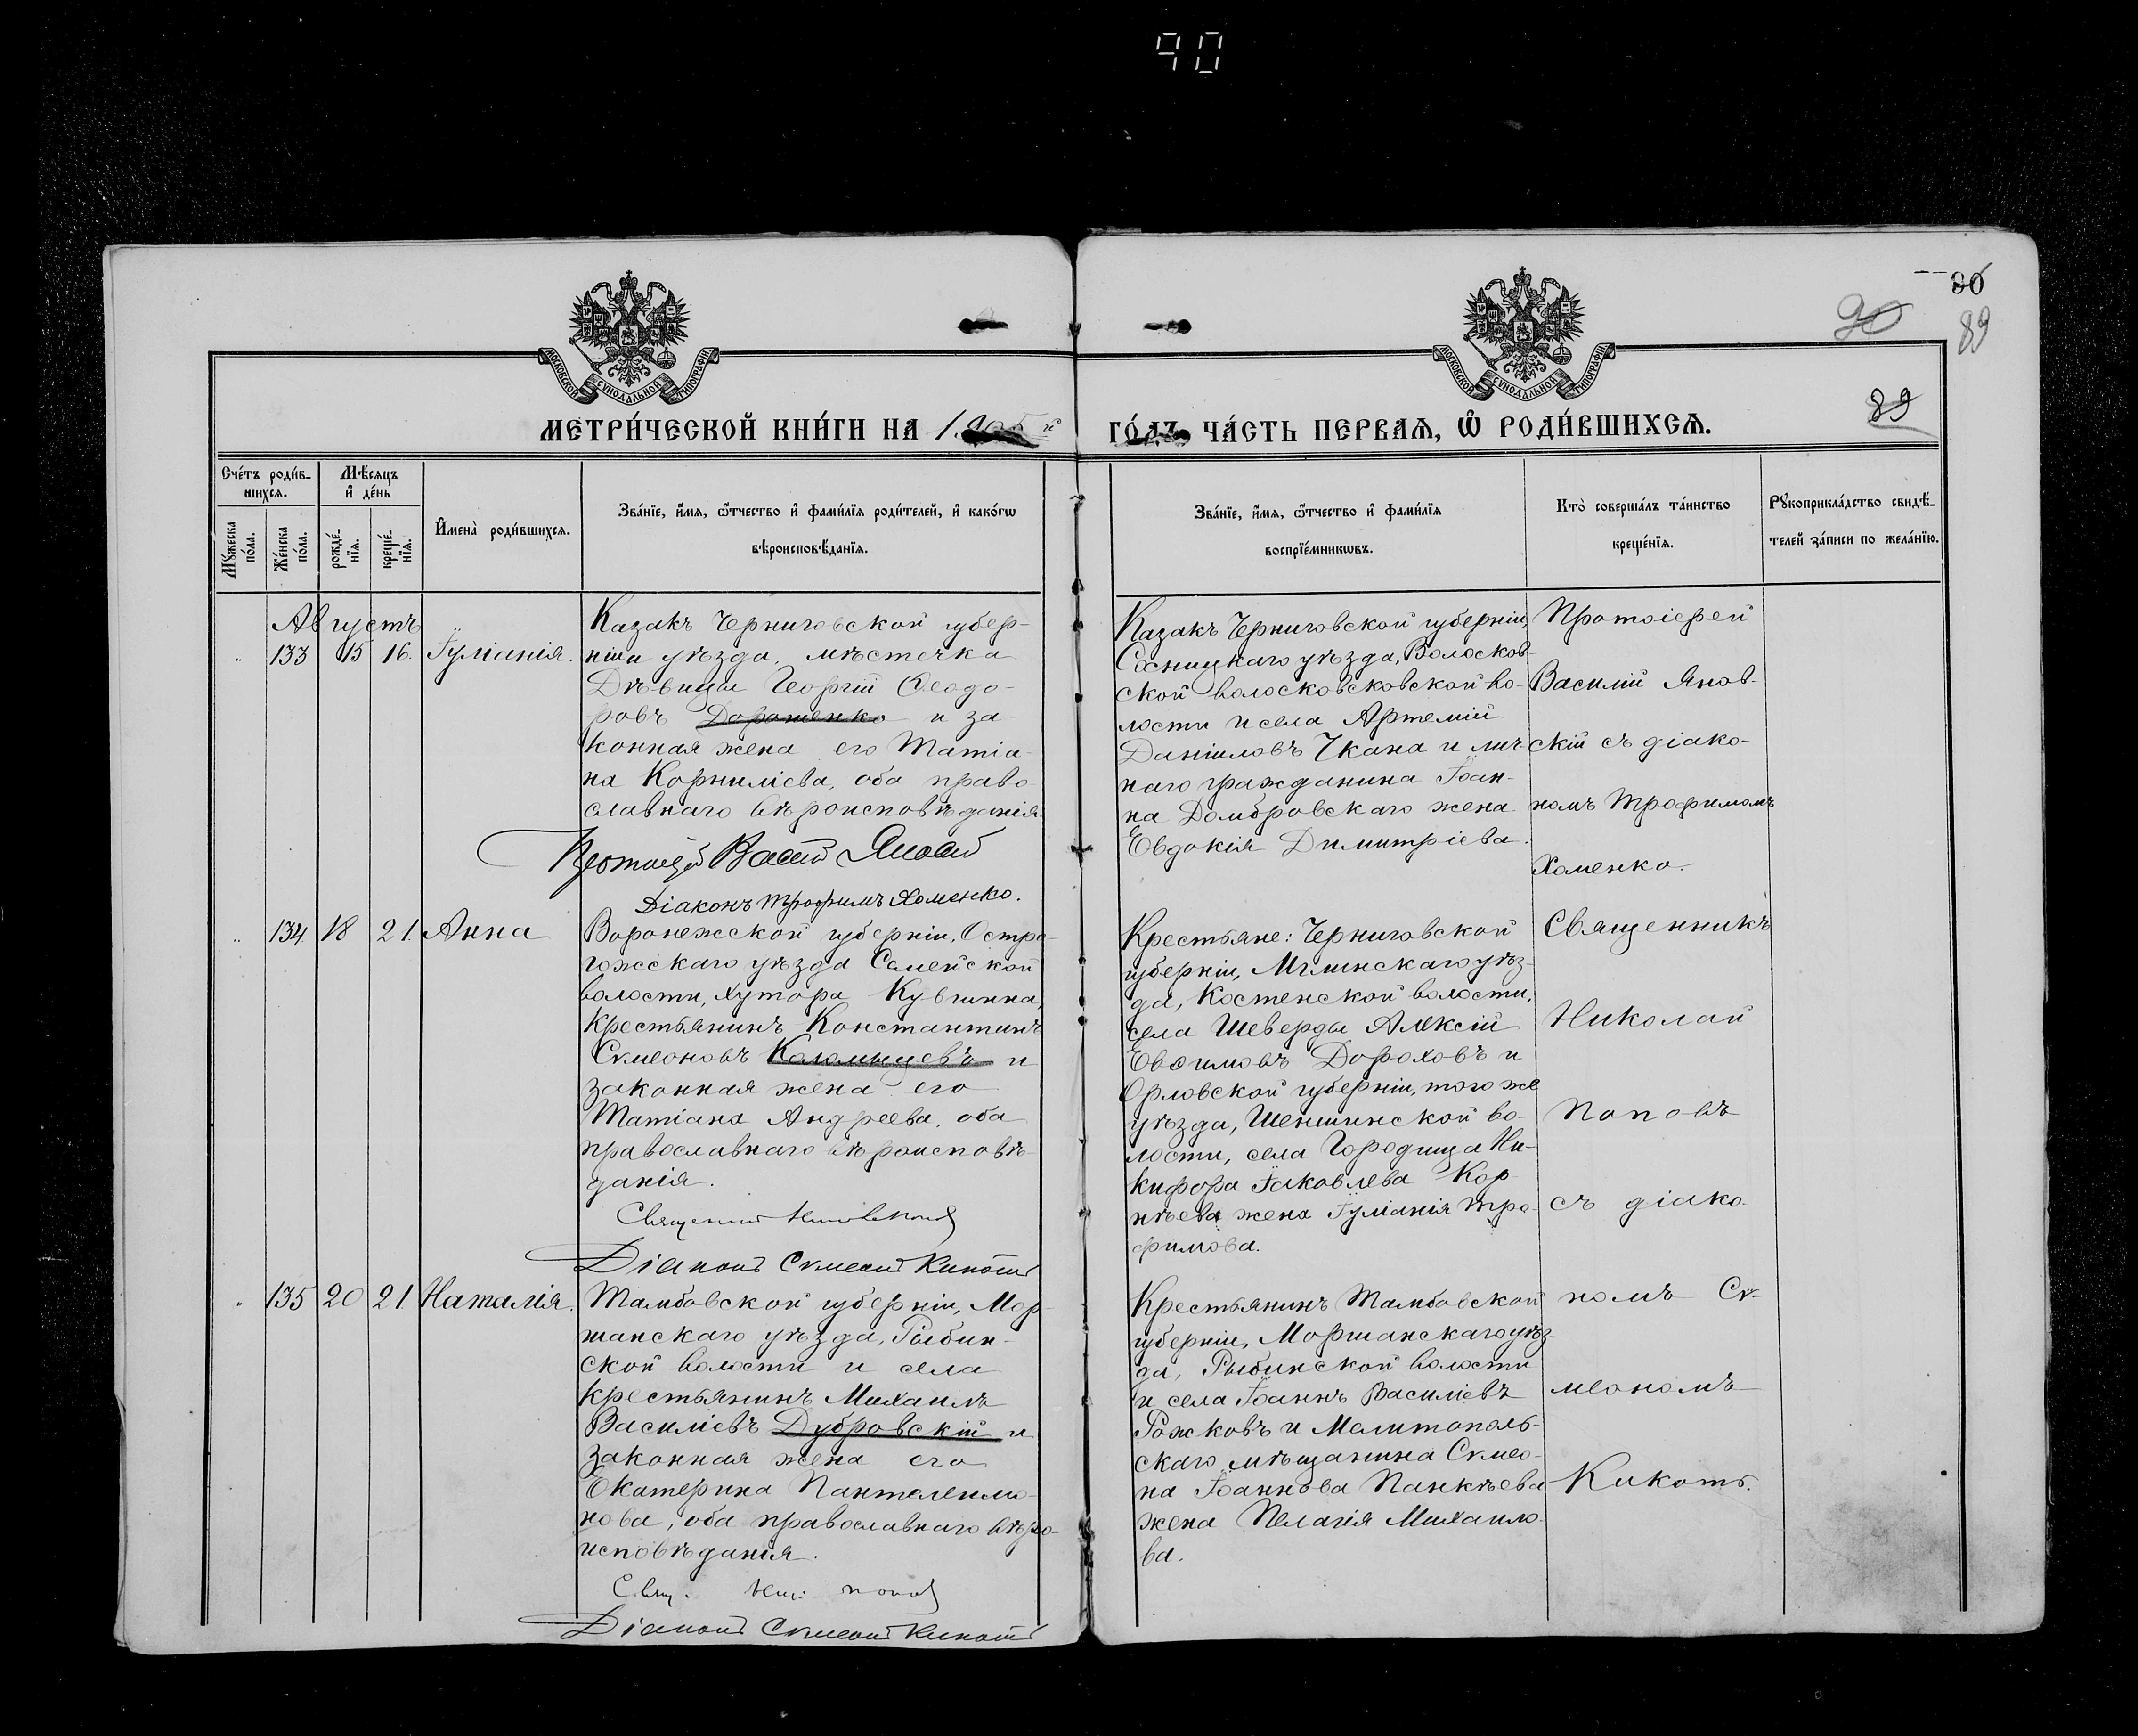 90
80
90
89
89
МОСКОВСКОЙ СѴНОДАЛЬНОЙ ТИПОГРАФІИ
МОСКОВСКОЙ СѴНОДАЛЬНОЙ ТИПОГРАФІИ
МЕТРИ́ЧЕСКОЙ КНИ́ГИ НА 1905 й ГО́ДЪ ЧА́СТЬ ПЕРВАѦ, Ѡ҆ РОДИ́ВШИХСѦ.
Сче́тъ роди́в-
шихсѧ.
Мѣ́сѧцъ
и҆ де́нь
Мꙋ́жеска
по́ла.
Же́нска
по́ла.
рожде́-
нїѧ.
креще́-
нїѧ.
И҆мена̀ роди́вшихсѧ.
Зва́нїе, и҆́мѧ, ѻ҆́тчество и҆ фами́лїѧ роди́телей, и҆ како́гѡ
вѣроисповѣ́данїѧ.
Зва́нїе, и҆́мѧ, ѻ҆́тчество и҆ фами́лїѧ
воспрїе́мникѡвъ.
Кто̀ соверша́лъ та́инство
креще́нїѧ.
Рꙋкоприкла́дство свидѣ́-
телей за́писи по жела́нїю.
Августъ
" 133 15 16. Іуліанія.
Казакъ Черниговской губер-
ніи уѣзда, мѣстечка
Дѣвицы Георгій Ѳеодо-
ровъ Дорошенко и за-
конная жена его Татіа-
на Корниліева, оба право-
славнаго вѣроисповѣданія.
Протоіерей Василій Яновскій
Діаконъ Трофимъ Хоменко.
Казакъ Черниговской губерніи,
Сосницкаго уѣзда, Волосков-
ской волосковсковской во-
лости и села Артемій
Даніиловъ Чкана и лич-
наго гражданина Іоан-
на Домбровскаго жена
Евдокія Димитріева.
Протоіерей
Василій Янов-
скій съ діако-
номъ Трофимомъ
Хоменко.
" 134 18 21. Анна
Воронежской губерніи, Остро-
гожскаго уѣзда Самейской
волости, хутора
Крестьянинъ Константинъ
Сѵмеоновъ Коломыцевъ и
законная жена его
Татіана Андреева, оба
православнаго вѣроисповѣ-
данія.
Священникъ Николай Поповъ
Діаконъ Сѵмеонъ Кикоть
Крестьяне: Черниговской
губерніи, Мглинскаго уѣз-
да, Костенской волости,
села Шеверды Алексій
Евѳимовъ Дороховъ и
Орловской губерніи, того же
уѣзда, Шеншинской во-
лости, села Городища Ни-
кифора Іаковлева Кор-
нѣева жена Іуліанія Тро-
фимова.
Священникъ
Николай
Поповъ
съ діако-
" 135 20 21. Наталія.
Тамбовской губерніи, Мор-
шанскаго уѣзда, Рыбин-
ской волости и села
крестьянинъ Михаилъ
Василіевъ Дубровскій и
законная жена его
Екатерина Пантелеимо-
нова, оба православнаго вѣро-
исповѣданія.
Свящ. Ник. Поповъ
Діаконъ Сѵмеонъ Кикоть
Крестьянинъ Тамбовской
губерніи, Моршанскаго уѣз-
да, Рыбинской волости
и села Іоаннъ Василіевъ
Рожковъ и Мелитополь-
скаго мѣщанина Сѵмео-
на Іоаннова Панкѣева
жена Пелагія Михаило-
ва.
номъ Сѵ-
меономъ
Кикоть.